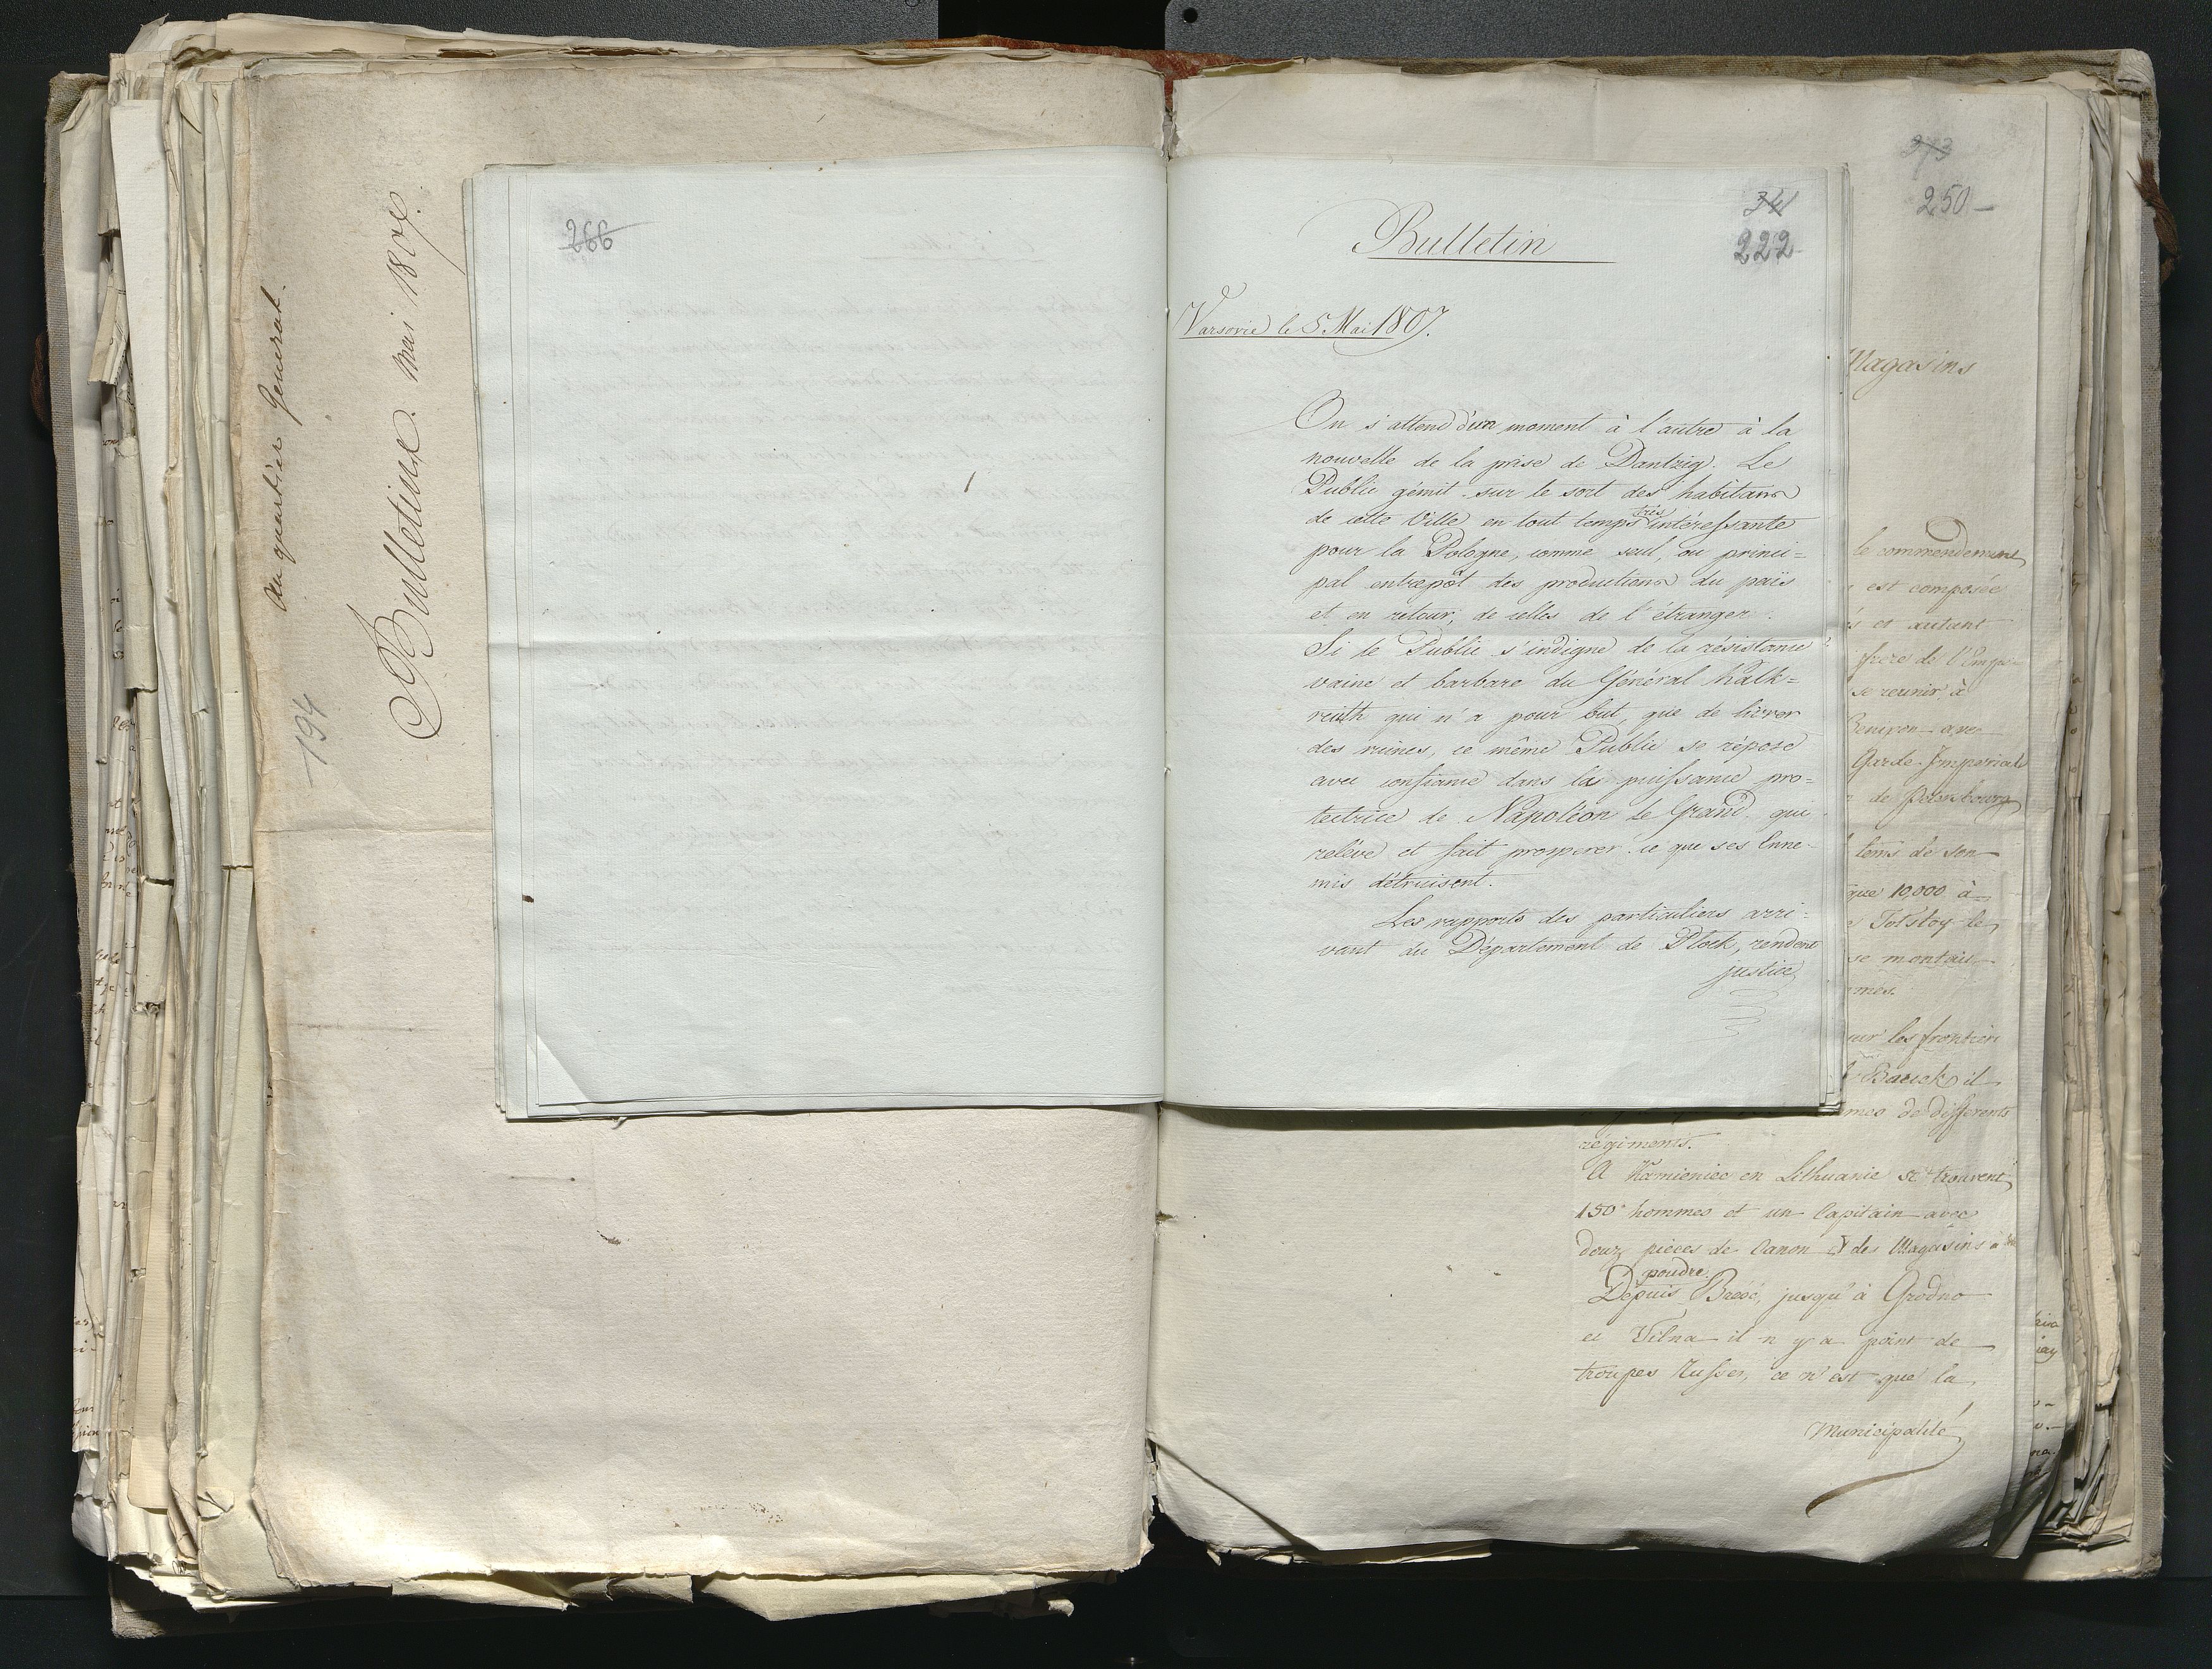 au quartier General.
Bulletins. mai 1807.
194
266
34
222
Bulletin
Varsovie le 5 Mai 1807.
On s'attend d'un moment à l'autre à la
nouvelle de la prise de Dantzig. Le
Public gémit sur le sort des habitans
de cette Ville en tout temps très intéressante
pour la Pologne, comme seul, ou princi=
pal entrepôt des productions du païs
et en retour, de celles de l'étranger.
Si le Public s'indigne de la résistance
vaine et barbare du Général Kalk=
reuth qui n'a pour but, que de livrer
des ruines, ce même Public se répose
avec confiance dans la puissance pro=
tectrice de Napoléon le Grand qui
relève et fait prosperer ce que ses Enne-
mis détruisent.
Les rapports des particuliers arri=
vant du Département de Plock, rendent
justice
273
250
Magasins
le commendement
est composée
et autant
frere de l'Empe-
se reunir à
avec
Garde Imperiale
de Petersbourg
tems de son
que 10,000 à
Tolstoy le
se montait
mes.
sur les frontier
il
mes de differents
régiments.
A Kamieniec en Lithuanie se trouvent
150 hommes et un Capitain avec
douz pièces de Canon & des Magasins a
poudre.
Dépuis Brèsc, jusqu'à Grodno
et Vilna il n'y a point de
troupes Russes, ce n'est que la
Municipalité